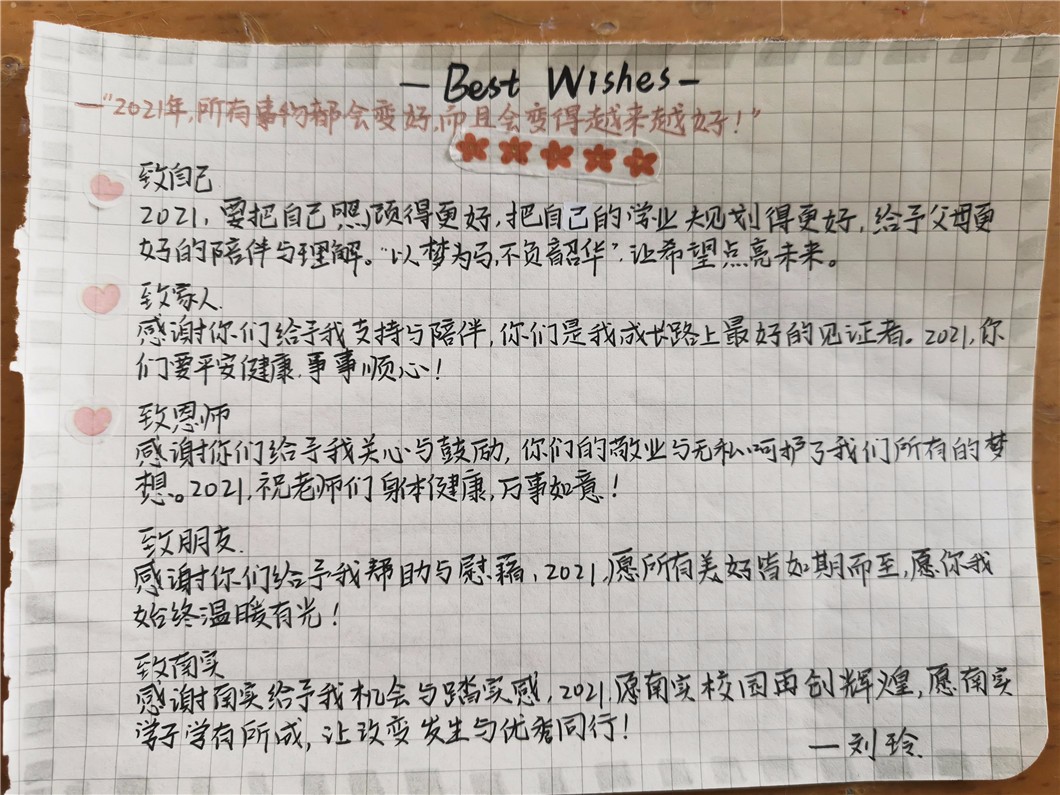 —Best Wishes—
—"2021年,所有事物都会变好,而且会变得越来越好!"
致自己
2021,要把自己照顾得更好,把自己的学业规划得更好,给予父母更
好的陪伴与理解。"以梦为马,不负韶华",让希望点亮未来。
致家人
感谢你们给予我支持与陪伴,你们是我成长路上最好的见证者。2021,你
们要平安健康,事事顺心!
致恩师
感谢你们给予我关心与鼓励,你们的敬业与无私呵护了我们所有的梦
想。2021,祝老师们身体健康,万事如意!
致朋友.
感谢你们给予我帮助与慰藉,2021,愿所有美好皆如期而至,愿你我
始终温暖有光!
致南实
感谢南实给予我机会与踏实感,2021,愿南实校园再创辉煌,愿南实
学子学有所成,让改变发生与优秀同行!
—刘玲.